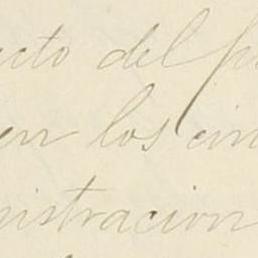 ecto del p
en los cin
nistracion